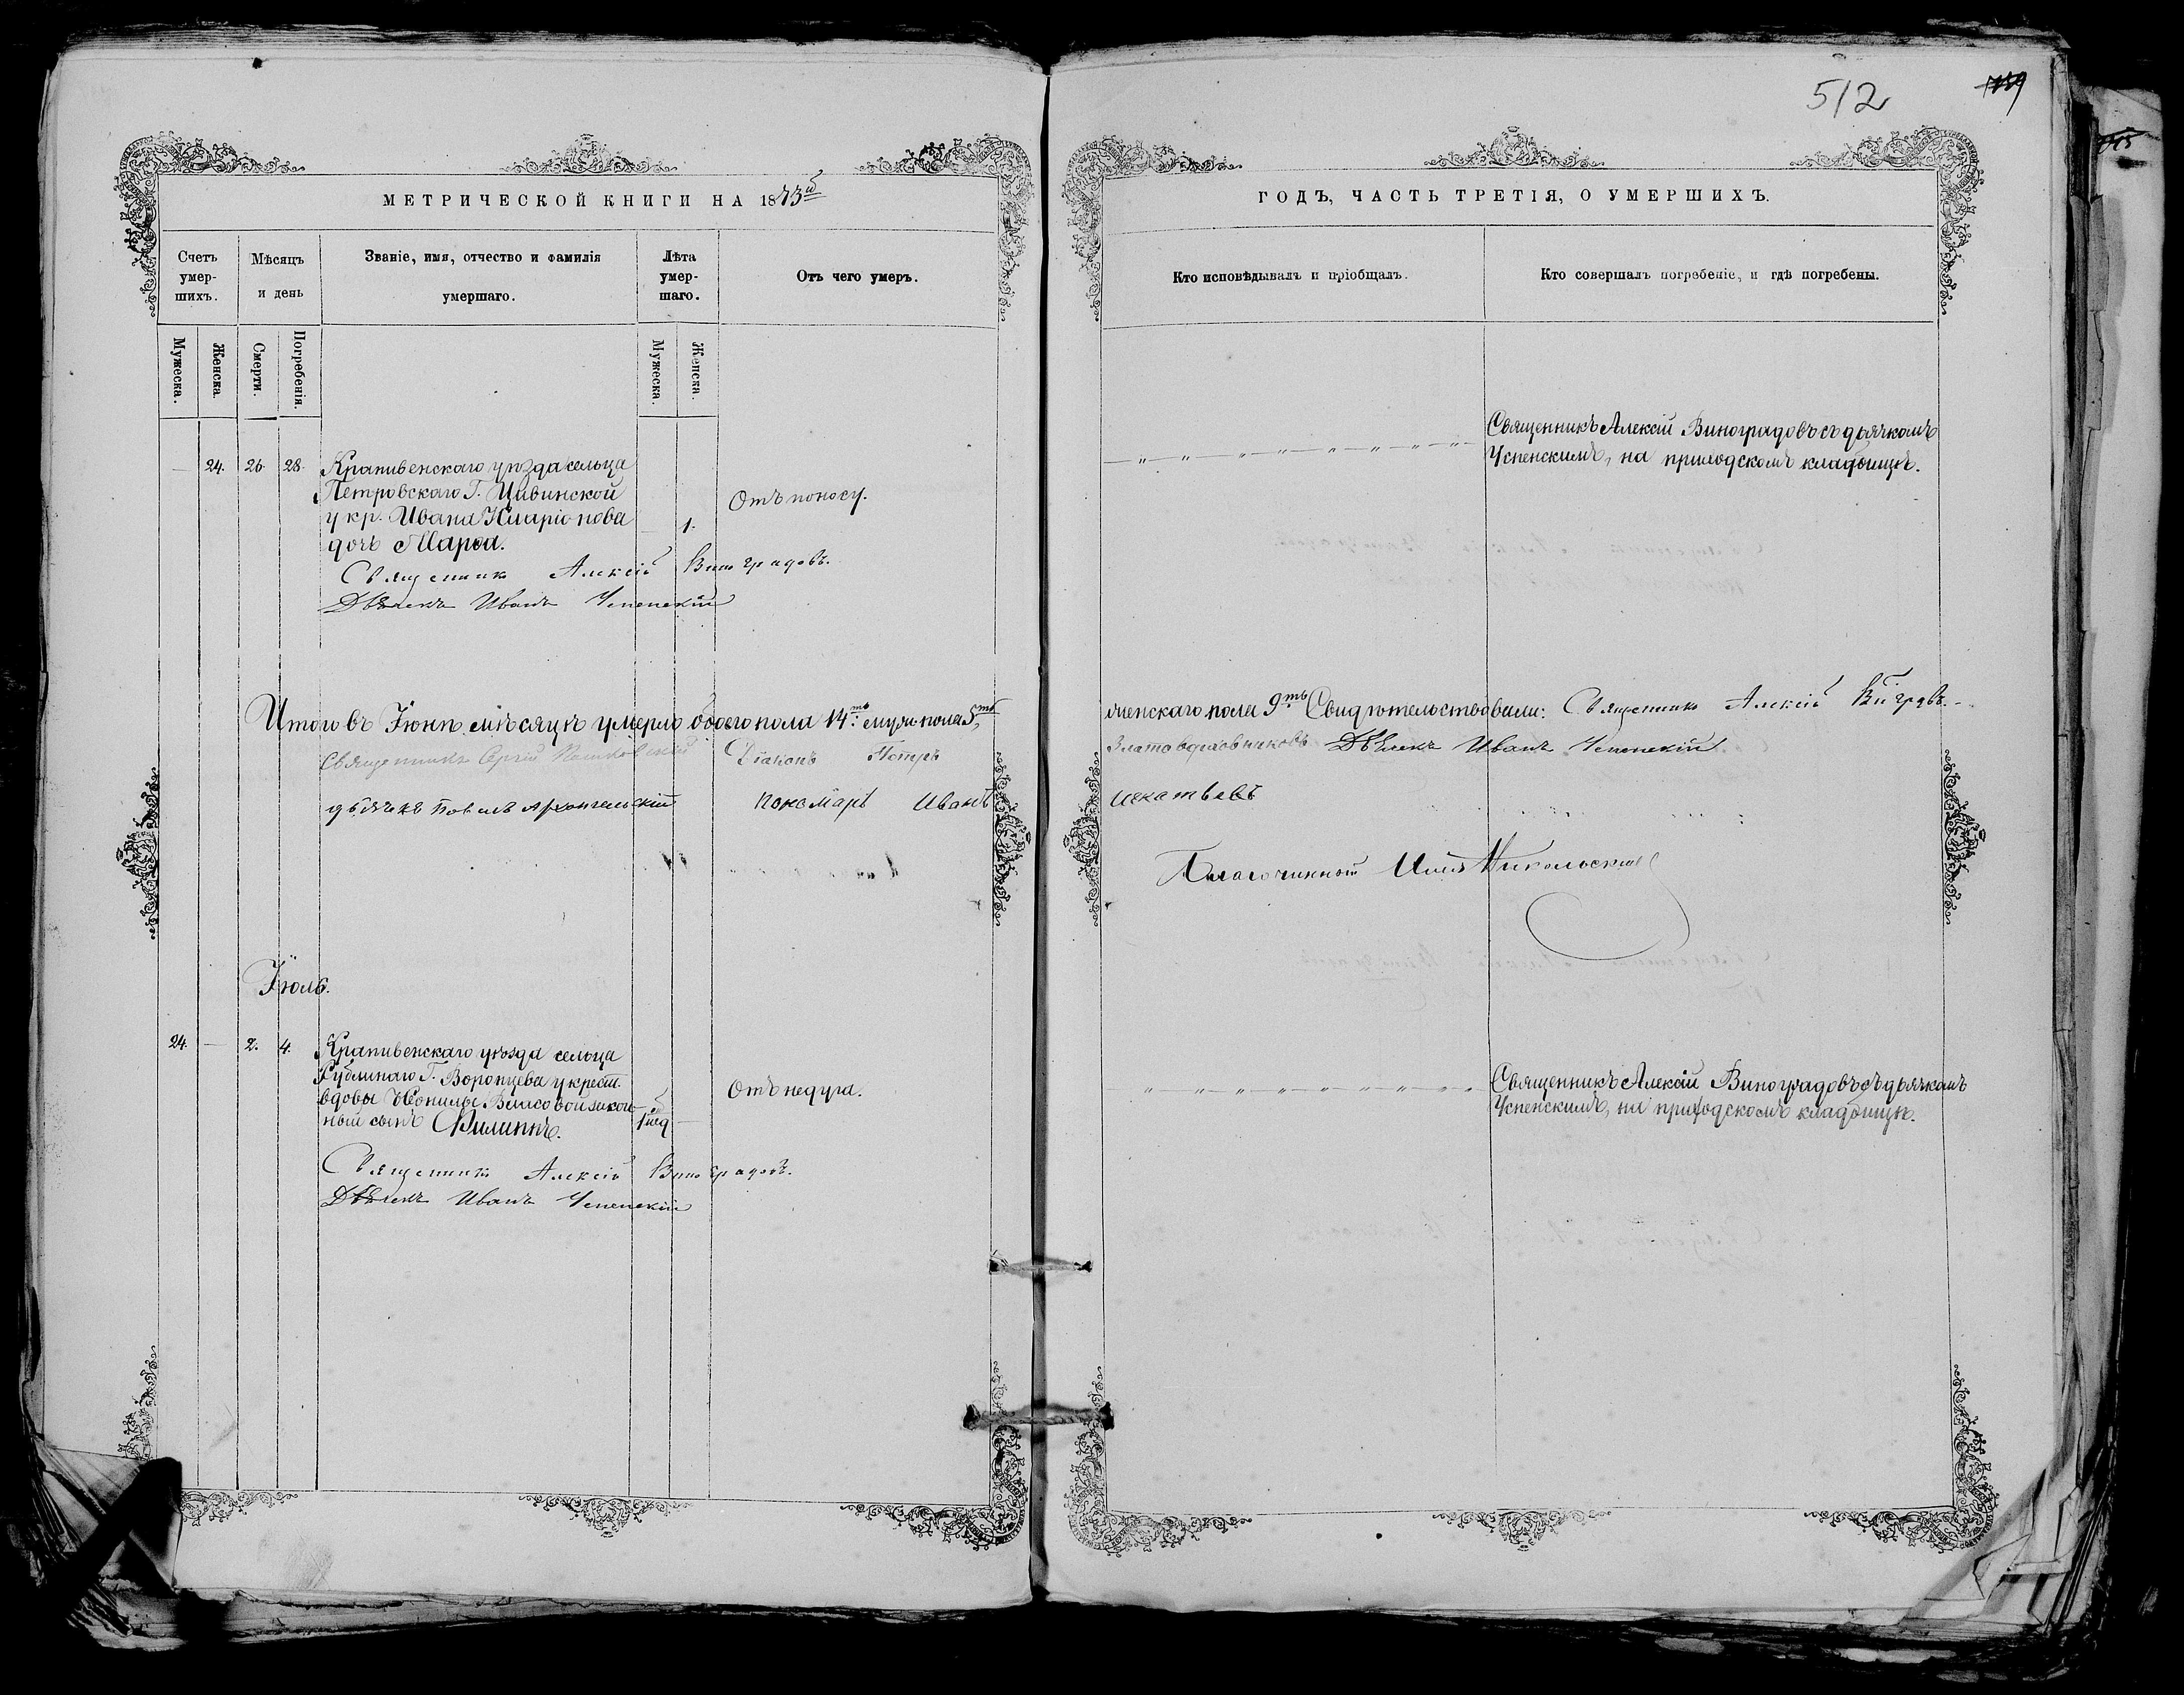 512
МЕТРИЧЕСКОЙ КНИГИ НА 1873й
ГОДЪ, ЧАСТЬ ТРЕТІЯ, О УМЕРШИХЪ.
Счетъ умер-шихъ.
Мѣсяцъ и день
Званіе, имя, отчество и фамилія умершаго.
Лѣта умер-шаго.
Отъ чего умеръ.
Кто исповѣдывалъ и пріобщалъ.
Кто совершалъ погребеніе, и гдѣ погребены.
Мужеска.
Женска.
Смерти.
Погребенія.
Мужеска.
Женска.
— 24. 26. 28. Крапивенскаго уѣзда сельца
Петровскаго Г. Цивинской
у кр. Ивана Иларіонова
дочь Марѳа.
— 1.
Отъ поносу.
Священникъ Алексій Виноградовъ съ дьячкомъ
Успенскимъ, на приходскомъ кладбищѣ.
Священникъ Алексій Виноградовъ.
Дьячекъ Иванъ Успенскій
Итого въ Іюнѣ мѣсяцѣ умерло обоего пола 14ть муж. пола 5ть
женскаго пола 9ть Свидѣтельствовали: Священникъ Алексій Вингрдвъ.
Священникъ Сергій Діаконъ Петръ
Златоверховниковъ Дьячекъ Иванъ Успенскій
дьячекъ Павелъ Архангельскій пономарь Иванъ
Благочинной Илія Никольскій
Іюль.
24. — 2. 4. Крапивенскаго уѣзда сельца
Г. Воронцева у крест.
вдовы Ѳеонилы Власовой закон-
ный сынъ Филиппъ.
1 нед —
Отъ недуга.
Священникъ Алексій Виноградовъ съ дьячкомъ
Успенскимъ, на приходскомъ кладбищѣ.
Священникъ Алексій Виноградовъ.
Дьячекъ Иванъ Успенскій